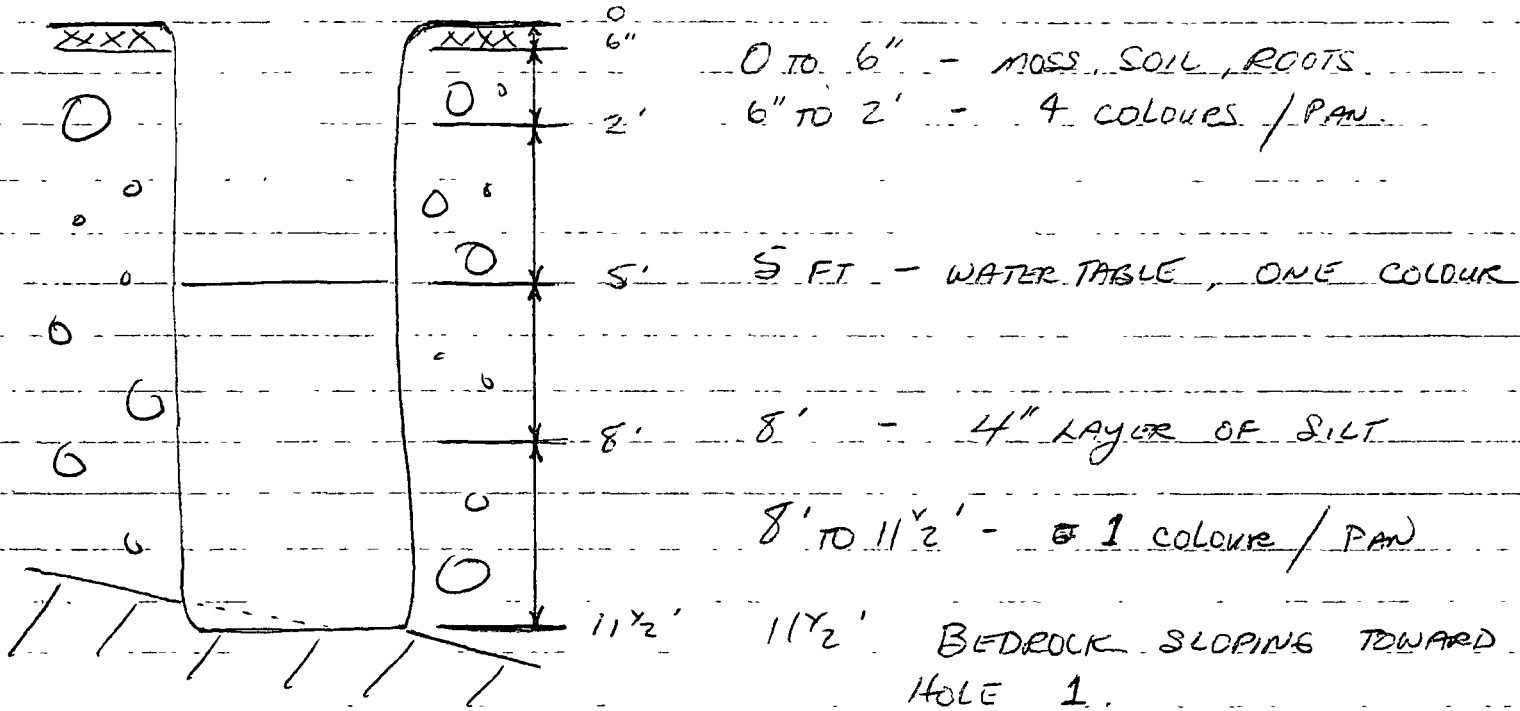 0
6"
0 TO 6" - MOSS, SOIL, ROOTS.
2' 6" TO 2' - 4 COLOURS / PAN.
5' 5 FT - WATER TABLE, ONE COLOUR
8' 8' - 4" LAYER OF SILT
8' TO 11 1/2' - 1 COLOUR / PAN
11 1/2' 11 1/2' BEDROCK SLOPING TOWARD
HOLE 1.